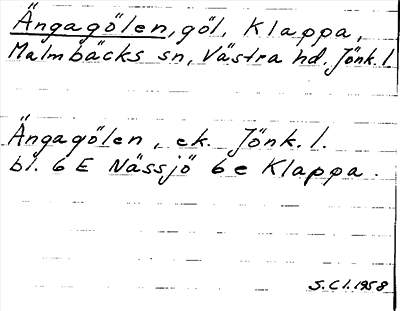 Ängagölen, göl, Klappa,
Malmbäcks sn, Västra hd. Jönk. l
Ängagölen, ek. Jönk. l.
bl. 6 E Nässjö 6 e Klappa.
S. C l. 1958